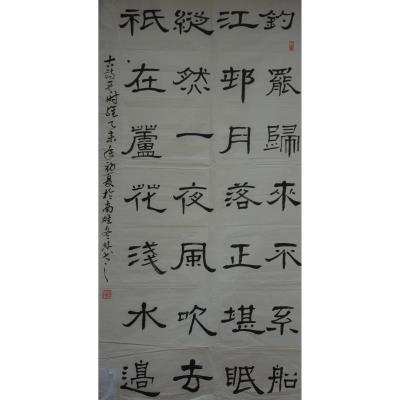 釣罷歸來不系船
江邨月落正堪眠
縱然一夜風吹去
祇在蘆花淺水邊
古詩 時 乙未年初夏於南